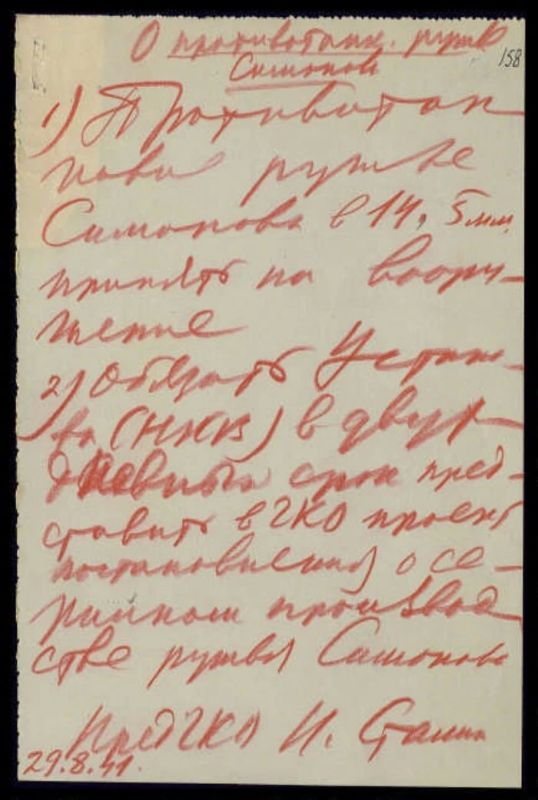 О противотанк. ружье
Симонова
158
1) Противотан
ковое ружье
Симонова в 14,5 мм
принять на воору-
жение
2) Обязать Устино-
ва (НКВ) в двух
дневный срок пред-
ставить в ГКО проект
постановления о се-
рийном производ
стве ружья Симонова
Пред ГКО И. Сталин
29.8.41.